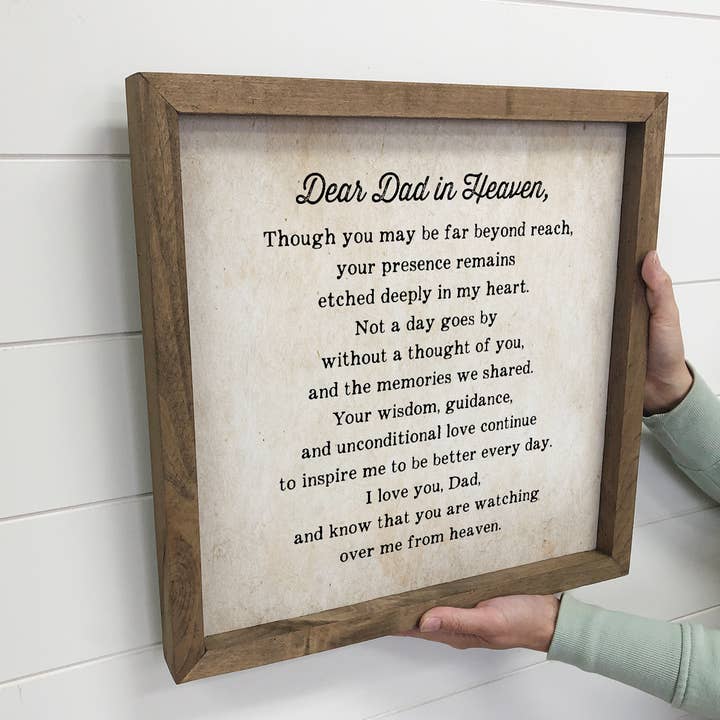 Dear Dad in Heaven,
Though you may be far beyond reach,
your presence remains
etched deeply in my heart.
Not a day goes by
without a thought of you,
and the memories we shared.
Your wisdom, guidance,
and unconditional love continue
to inspire me to be better every day.
I love you, Dad,
and know that you are watching
over me from heaven.